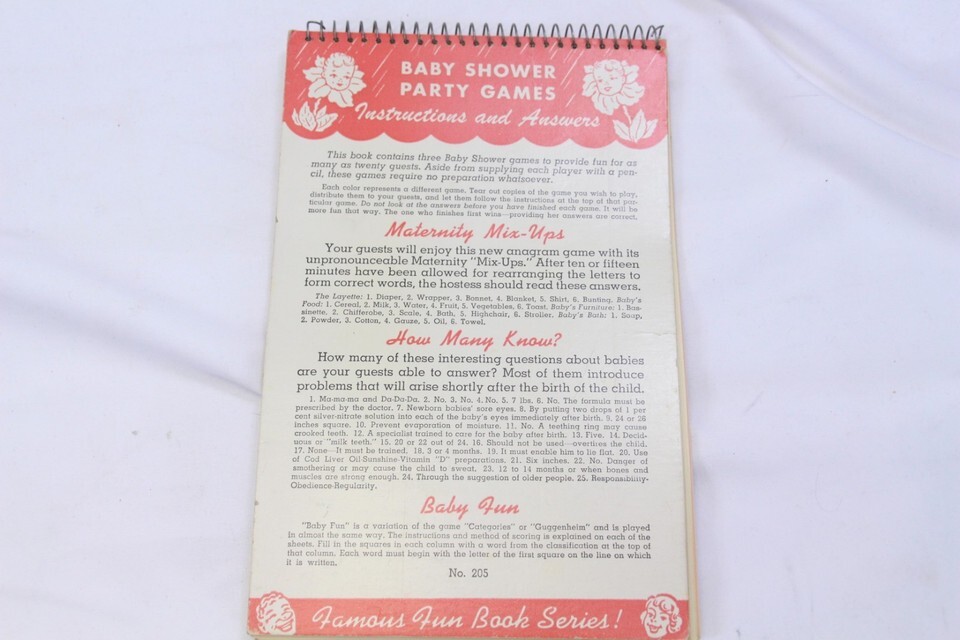 BABY SHOWER
PARTY GAMES
Instructions and Answers
This book contains three Baby Shower games to provide fun for as
many as twenty guests. Aside from supplying each player with a pen-
cil, these games require no preparation whatsoever.
Each color represents a different game. Tear out copies of the game you wish to play,
distribute them to your guests, and let them follow the instructions at the top of that par-
ticular game. Do not look at the answers before you have finished each game. It will be
more fun that way. The one who finishes first wins—providing her answers are correct.
Maternity Mix-Ups
Your guests will enjoy this new anagram game with its
unpronounceable Maternity "Mix-Ups." After ten or fifteen
minutes have been allowed for rearranging the letters to
form correct words, the hostess should read these answers.
The Layette: 1. Diaper, 2. Wrapper, 3. Bonnet, 4. Blanket, 5. Shirt, 6. Bunting. Baby's
Food: 1. Cereal, 2. Milk, 3. Water, 4. Fruit, 5. Vegetables, 6. Toast. Baby's Furniture: 1. Bas-
sinette, 2. Chifferobe, 3. Scale, 4. Bath, 5. Highchair, 6. Stroller. Baby's Bath: 1. Soap,
2. Powder, 3. Cotton, 4. Gauze, 5. Oil, 6. Towel.
How Many Know?
How many of these interesting questions about babies
are your guests able to answer? Most of them introduce
problems that will arise shortly after the birth of the child.
1. Ma-ma-ma and Da-Da-Da. 2. No. 3. No. 4. No. 5. 7 lbs. 6. No. The formula must be
prescribed by the doctor. 7. Newborn babies' sore eyes. 8. By putting two drops of 1 per
cent silver-nitrate solution into each of the baby's eyes immediately after birth. 9. 24 or 26
inches square. 10. Prevent evaporation of moisture. 11. No. A teething ring may cause
crooked teeth. 12. A specialist trained to care for the baby after birth. 13. Five. 14. Decid-
uous or "milk teeth." 15. 20 or 22 out of 24. 16. Should not be used—overtires the child.
17. None—It must be trained. 18. 3 or 4 months. 19. It must enable him to lie flat. 20. Use
of Cod Liver Oil-Sunshine-Vitamin "D" preparations. 21. Six inches. 22. No. Danger of
smothering or may cause the child to sweat. 23. 12 to 14 months or when bones and
muscles are strong enough. 24. Through the suggestion of older people. 25. Responsibility-
Obedience-Regularity.
Baby Fun
"Baby Fun" is a variation of the game "Categories" or "Guggenheim" and is played
in almost the same way. The instructions and method of scoring is explained on each of the
sheets. Fill in the squares in each column with a word from the classification at the top of
that column. Each word must begin with the letter of the first square on the line on which
it is written.
No. 205
Famous Fun Book Series!